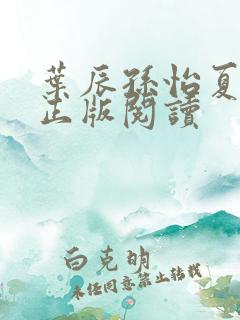 葉辰孫怡夏
正版閱讀
白克明
未经同意禁止转载